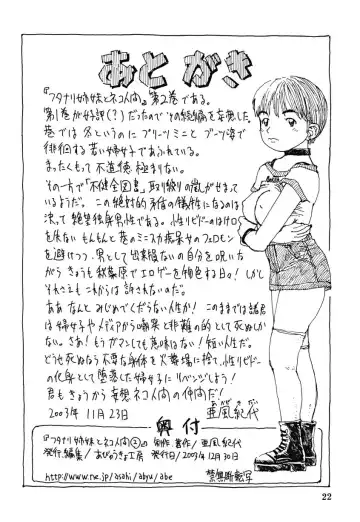 あとがき
『フタナリ姉妹とネコ人間』第2巻である。
第1巻が好評(?)だったのでその続編を妄想した。
巷では冬というのにプリーツミニとブーツ姿で
徘徊する若い婦女子であふれている。
まったくもって不道徳極まりない。
その一方で「不健全図書」取り締りの嵐がせまって
いるようだ。この絶対的矛盾の犠牲になるのは
決って絶望独身男性である。性リビドーのはけ口
を求めもんもんと巷のミニスカ痴呆サルフェロモン
を避けつつ、男として出来損ないの自分を呪いな
がらきょうも秋葉原でエロゲーを物色する日々!しかし
それさえもこれからは許されないのだ。
ああなんとみじめでくだらない人生か!このままでは諸君
は婦女子やメディアから嘲笑と非難の的として死ぬしか
ない。さあ!もうガマンしても意味はない!短い人生だ。
どうせ死ぬなら不要な身体を火葬場に捨て、性リビドー
の化身として堕落した婦女子にリベンジしよう!
君もきょうから妄想ネコ人間の仲間だ!
2003年 11月23日 亜風紀代
奥付
『フタナリ姉妹とネコ人間②』 制作・著作/亜風紀代
発行・編集/あびゅうきょ工房 発行日/2003年12月30日
http://www.ne.jp/asahi/abyu/abe 禁無断転写
22